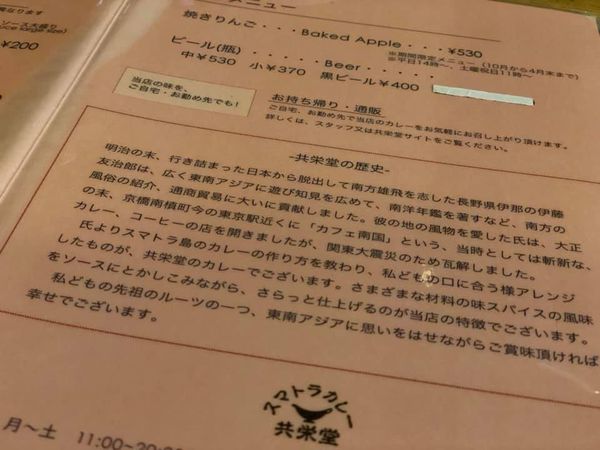 異なります
ソース大盛り
uce large size)
¥200
メニュー
焼きりんご・・・Baked Apple・・・¥530
※期間限定メニュー(10月から4月末まで)
※平日14時〜、土曜祝日11時〜
ビール(瓶)・・・・・Beer・・・・・
中¥530 小¥370 黒ビール¥400
当店の味を、
ご自宅・お勤め先でも!
お持ち帰り・通販
ご自宅、お勤め先で当店のカレーをお気軽にお召し上がり頂けます。
詳しくは、スタッフ又は共栄堂サイトをご覧ください。
-共栄堂の歴史-
明治の末、行き詰まった日本から脱出して南方雄飛を志した長野県伊那の伊藤
友治郎は、広く東南アジアに遊び知見を広めて、南洋年鑑を著すなど、南方の
風俗の紹介、通商貿易に大いに貢献しました。彼の地の風物を愛した氏は、大正
の末、京橋南槇町今の東京駅近くに「カフェ南国」という、当時としては斬新な、
カレー、コーヒーの店を開きましたが、関東大震災のため瓦解しました。
氏よりスマトラ島のカレーの作り方を教わり、私どもの口に合う様アレンジ
したものが、共栄堂のカレーでございます。さまざまな材料の味スパイスの風味
をソースにとかしこみながら、さらっと仕上げるのが当店の特徴でございます。
私どもの先祖のルーツの一つ、東南アジアに思いをはせながらご賞味頂ければ
幸せでございます。
スマトラカレー
共栄堂
月〜土 11:00-20: